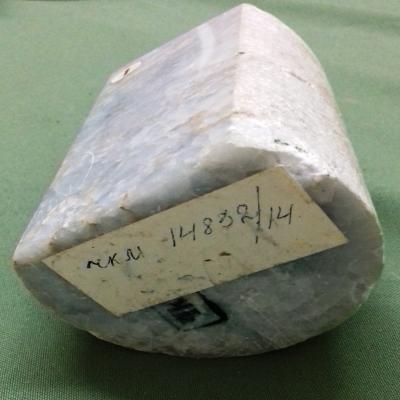 чкм 14832/14